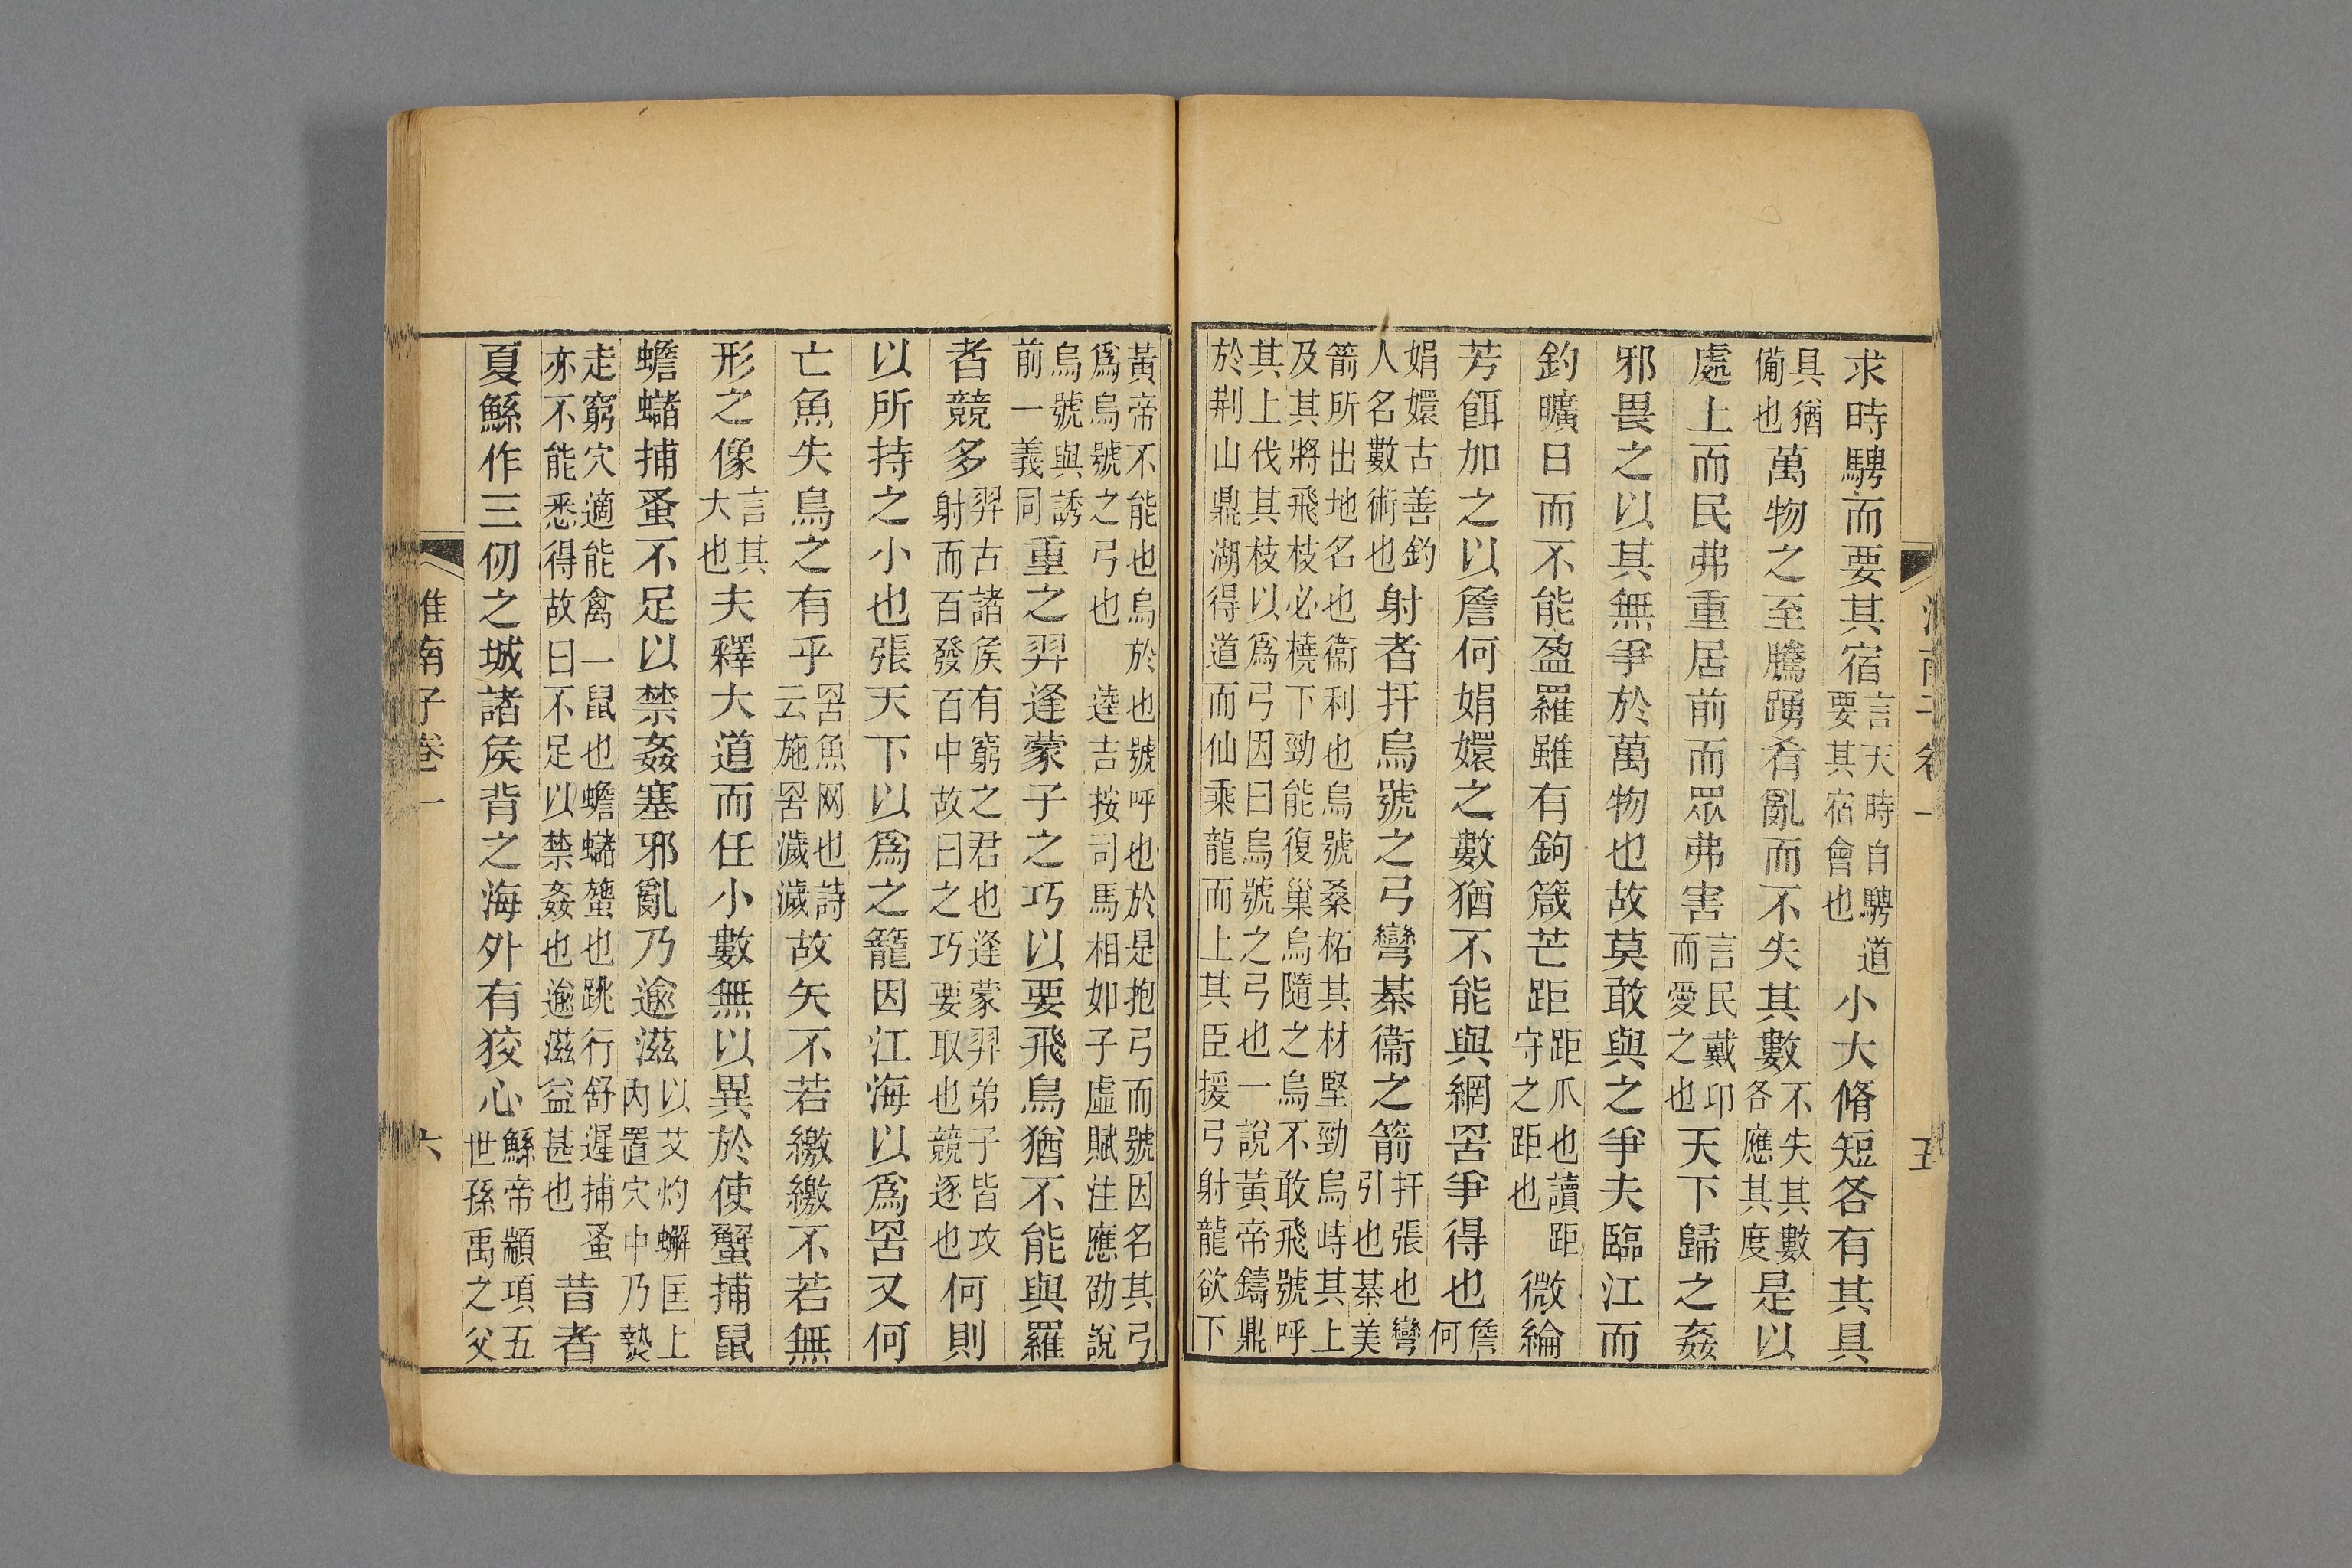 求時騁而要其宿言天時自騁道要其宿會也小大脩短各有其具
具猶備也萬物之至騰踴肴亂而不失其數不失其數各應其度是以
處上而民弗重居前而眾弗害言民戴卬而愛之也天下歸之姦
邪畏之以其無爭於萬物也故莫敢與之爭夫臨江而
釣曠日而不能盈羅雖有鉤箴芒距距爪也讀距守之距也微綸
芳餌加之以詹何娟嬛之數猶不能與網罟爭得也詹何
娟嬛古善釣人名數術也射者扞烏號之弓彎棊衞之箭扞張也彎引也棊美
箭所出地名也衞利也烏號桑柘其材堅勁烏峙其上及其將飛枝必橈下勁能復巢烏隨之烏不敢飛號呼
其上伐其枝以爲弓因曰烏號之弓也一說黃帝鑄鼎於荆山鼎湖得道而仙乘龍而上其臣援弓射龍欲下
淮南子卷一
五
黃帝不能也烏於也號呼也於是抱弓而號因名其弓爲烏號之弓也逵吉按司馬相如子虛賦注應劭說
烏號與誘前一義同重之羿逢蒙子之巧以要飛鳥猶不能與羅
者競多羿古諸矦有窮之君也逢蒙羿弟子皆攻射而百發百中故曰之巧要取也競逐也何則
以所持之小也張天下以爲之籠因江海以爲罟又何
亡魚失鳥之有乎罟魚网也詩云施罟濊濊故矢不若繳繳不若無
形之像言其大也夫釋大道而任小數無以異於使蟹捕鼠
蟾蠩捕蚤不足以禁姦塞邪亂乃逾滋以艾灼蠏匡上內置穴中乃熱
走窮穴適能禽一鼠也蟾蠩蟼也跳行舒遲捕蚤亦不能悉得故曰不足以禁姦也逾滋益甚也昔者
夏鯀作三仞之城諸矦背之海外有狡心鯀帝顓頊五世孫禹之父
淮南子卷一
六